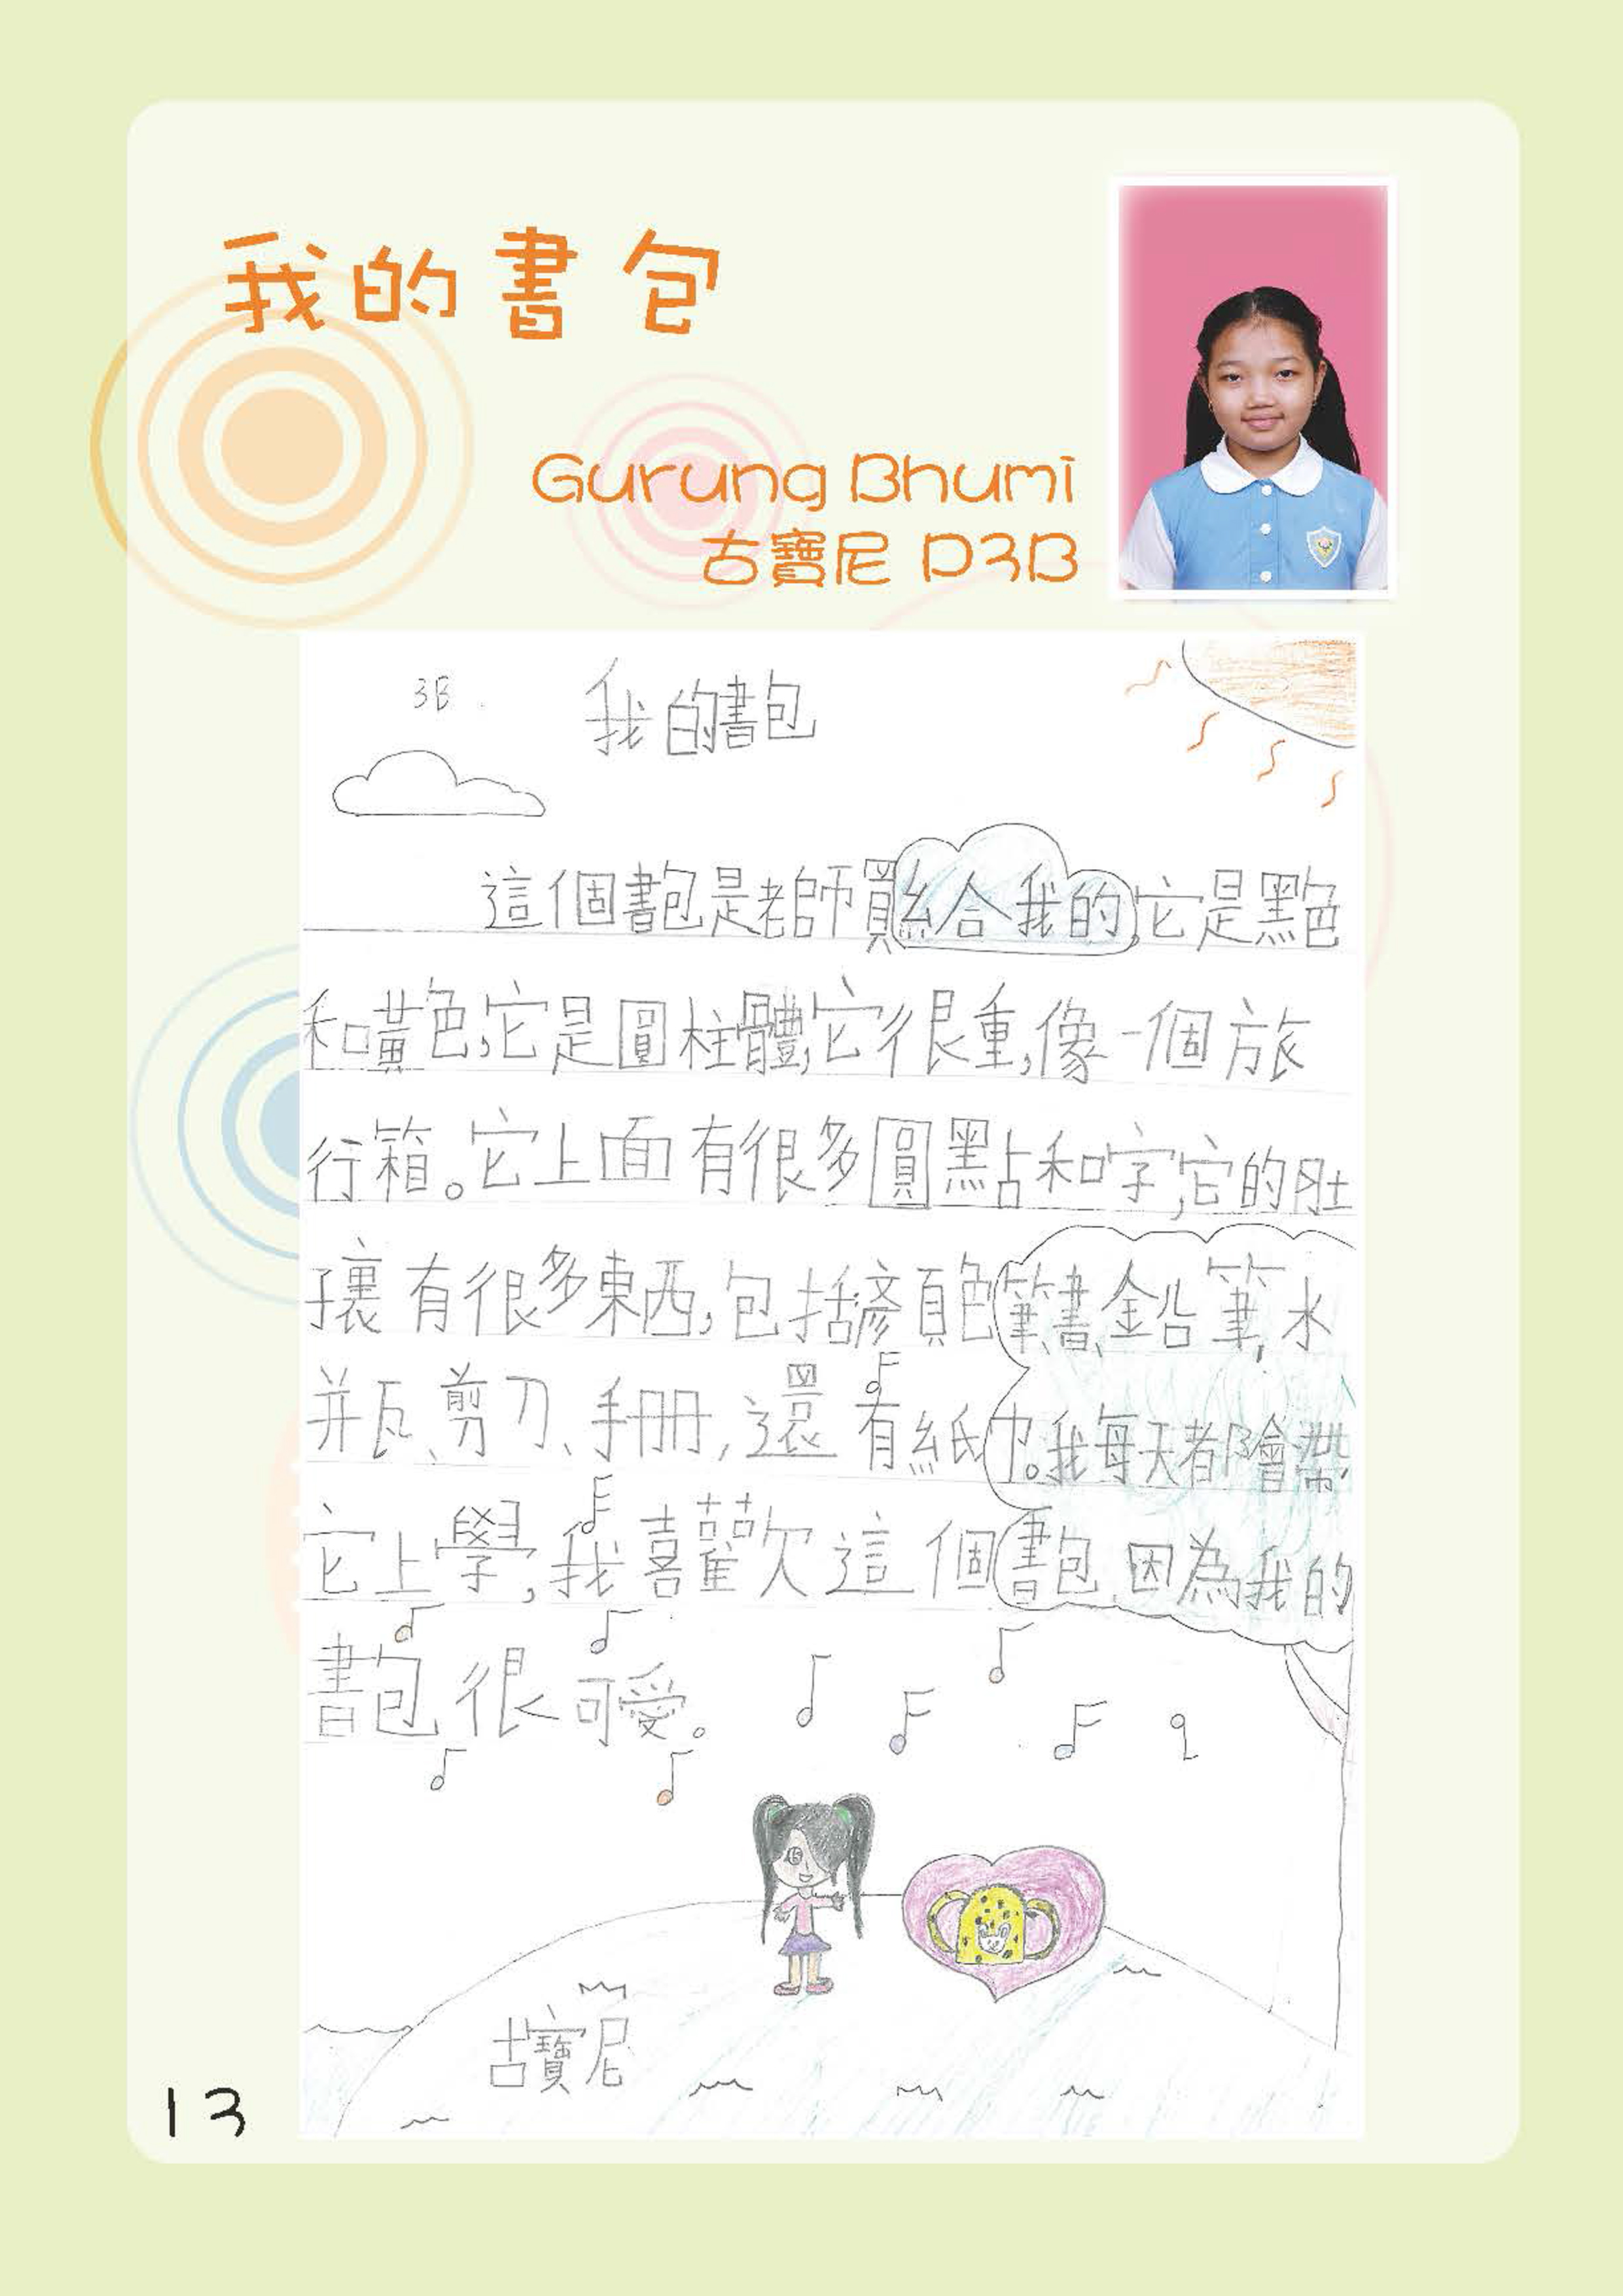 我的書包
Gurung Bhumi
古寶尼 P3B
3B.
我的書包
這個書包是老師買給我的,它是黑色
和黃色,它是圓柱體,它很重,像一個旅
行箱。它上面有很多圓點和字,它的肚
子裏有很多東西,包括顏色筆、書、鉛筆,水
瓶、剪刀、手冊,還有紙巾。我每天都會帶
它上學,我喜歡這個書包,因為我的
書包很可愛。
古寶尼
13